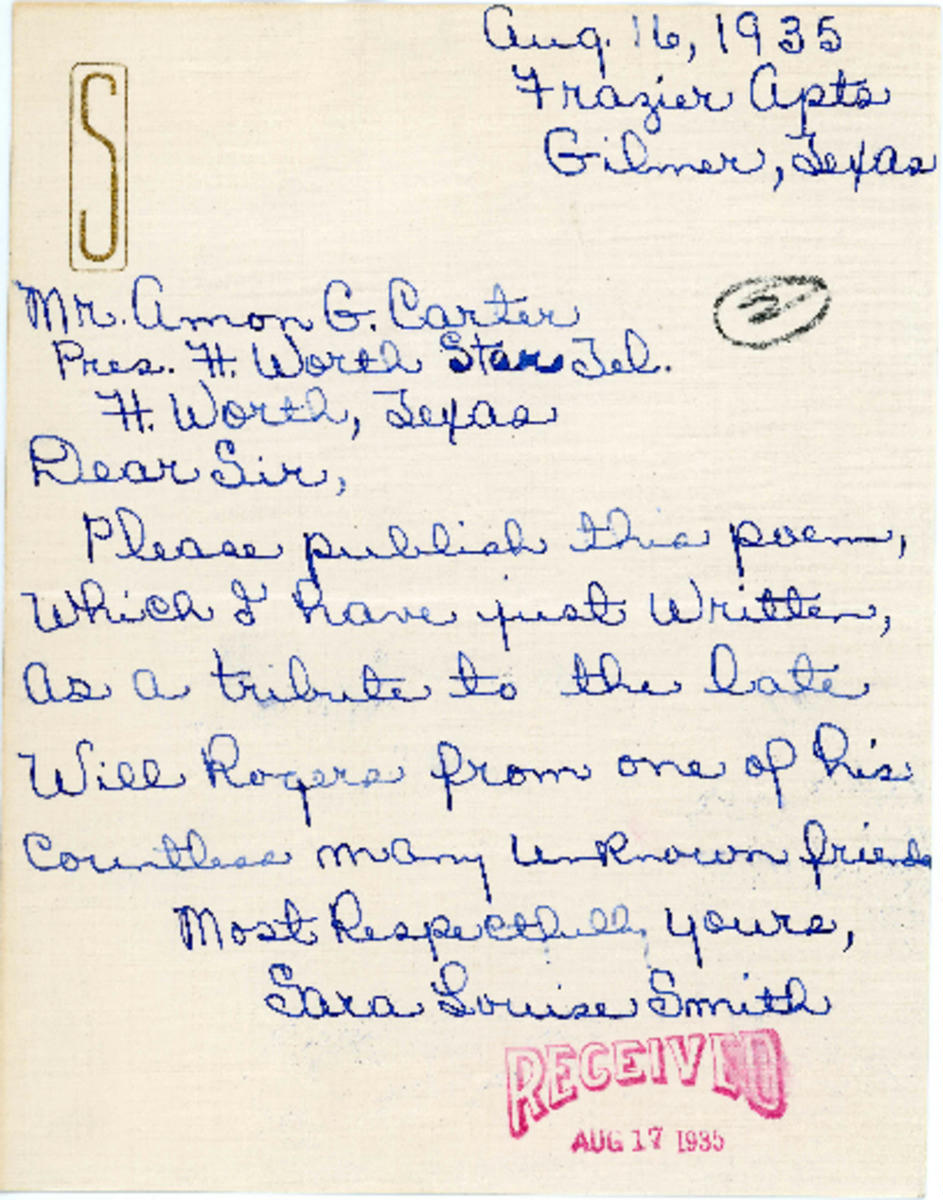 Aug. 16, 1935
Frazier Apts
Gilmer, Texas
S
Mr. Amon G. Carter
2
Pres. Ft. Worth Star Tel.
Ft. Worth, Texas
Dear Sir,
Please publish this poem,
Which I have just Written,
As a tribute to the late
Will Rogers from one of his
Countless many unknown friends
Most Respectfully yours,
Sara Louise Smith
RECEIVED
AUG 17 1935